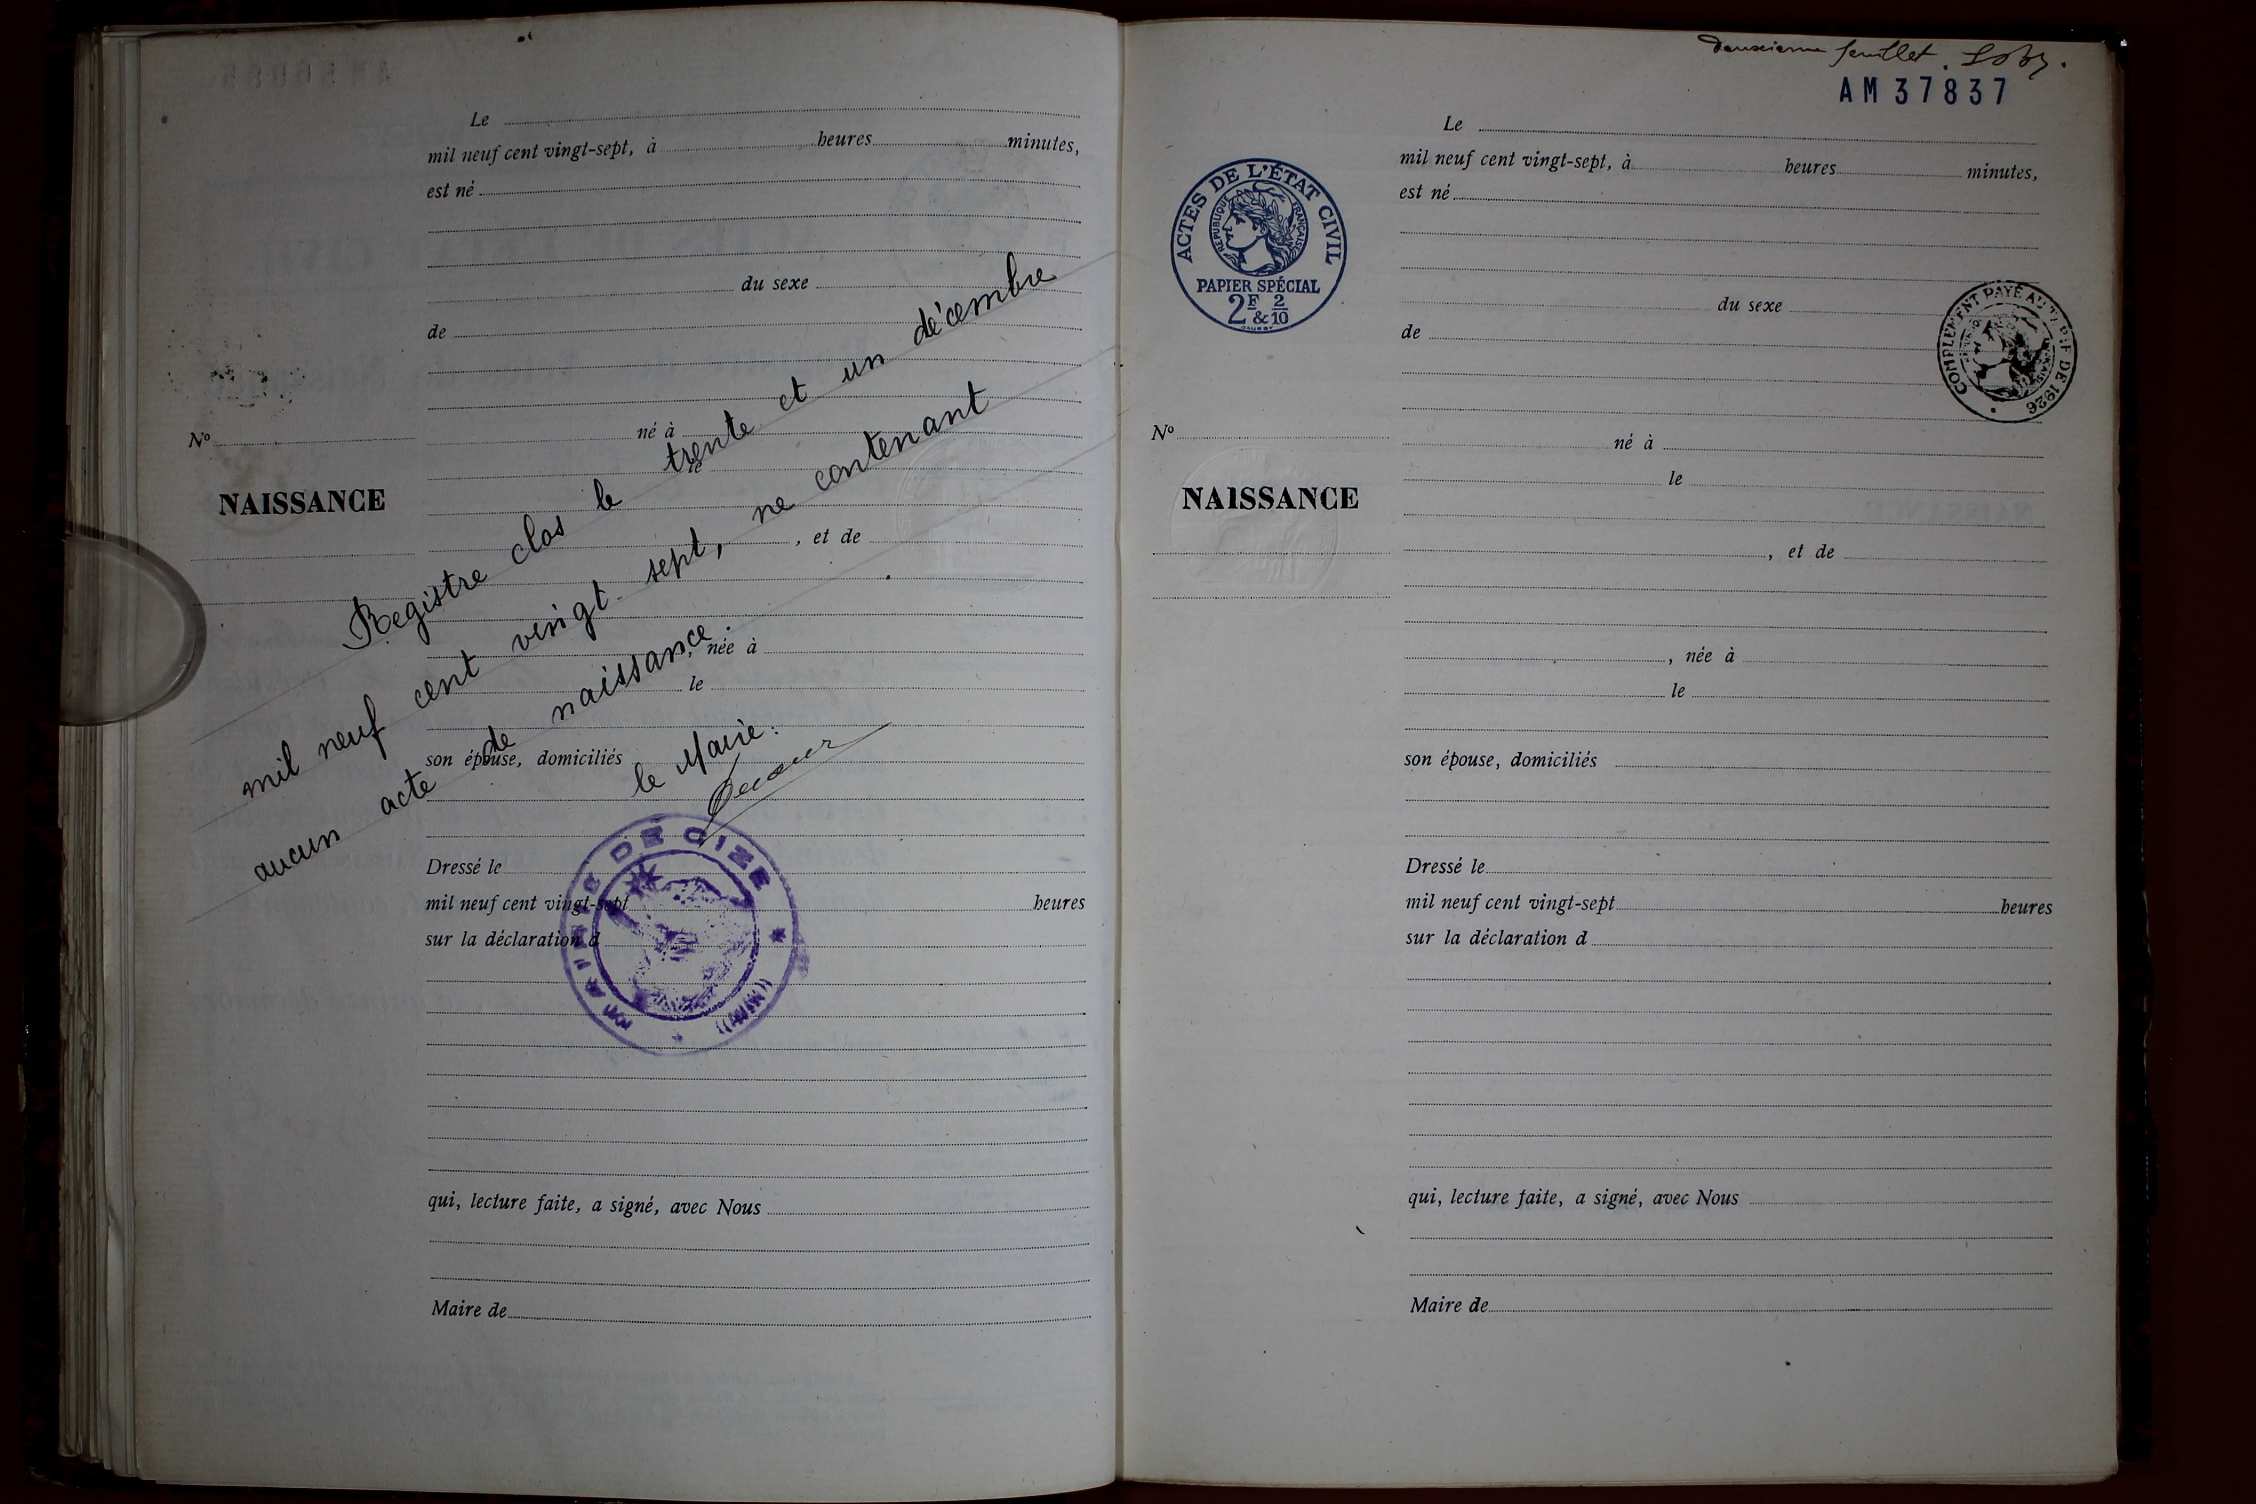 Le
mil neuf cent vingt-sept, à heures minutes,
est né
du sexe
de
né à
le
Nº
NAISSANCE
, et de
, née à
le
son épouse, domiciliés
Dressé le
mil neuf cent vingt-sept heures
sur la déclaration d
qui, lecture faite, a signé, avec Nous
Maire de
Registre clos le trente et un décembre
mil neuf cent vingt-sept, ne contenant
aucun acte de naissance.
le Maire:
MAIRIE DE CIZE
(AIN)
deuxième feuillet.
AM 37837
ACTES DE L'ÉTAT CIVIL
RÉPUBLIQUE FRANÇAISE
PAPIER SPÉCIAL
2F & 2/10
COMPLÉMENT PAYÉ AU TARIF DE 1926
Le
mil neuf cent vingt-sept, à heures minutes,
est né
du sexe
de
Nº
né à
le
NAISSANCE
, et de
, née à
le
son épouse, domiciliés
Dressé le
mil neuf cent vingt-sept heures
sur la déclaration d
qui, lecture faite, a signé, avec Nous
Maire de